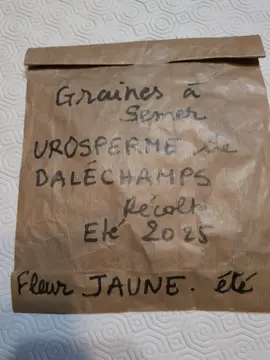 Graines à
Semer
UROSPERME de
DALÉCHAMPS
Récolte
Eté 2025
Fleur JAUNE. été